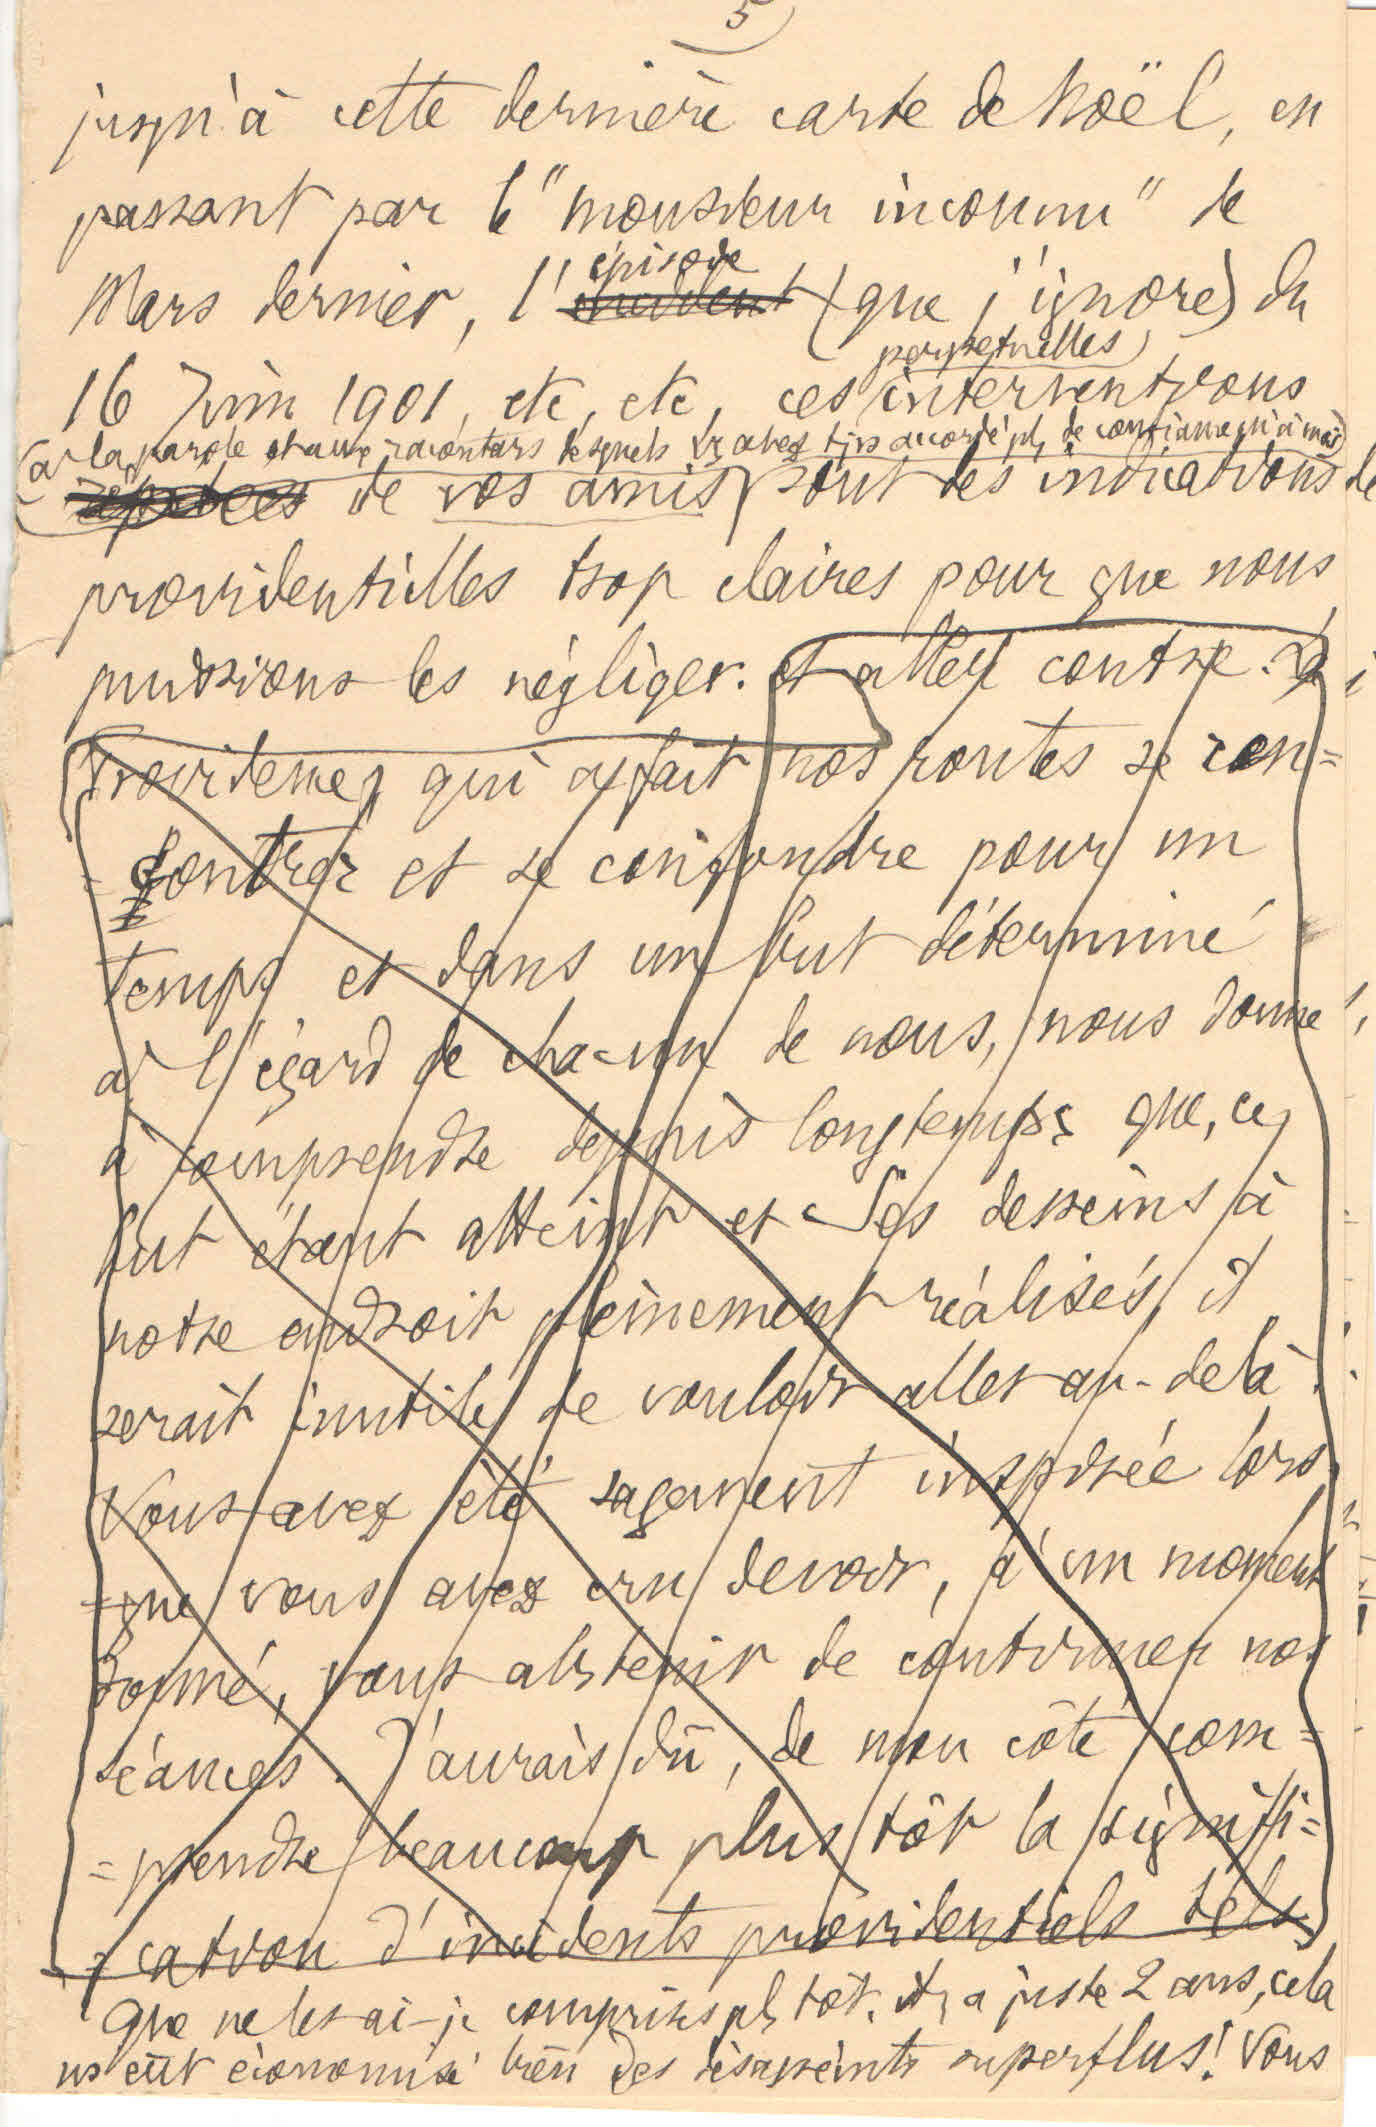 5)
jusqu'à cette dernière carte de Noël, en
passant par le "monsieur inconnu" de
épisode
Mars dernier, l'incident (que j'ignore) du
perpétuelles
16 Juin 1901, etc, etc, ces interventions
(à la parole et aux racontars desquels vs avez tjrs accordé pls de confiance qu'à moi)
répétées de vos amis, sont des indications
providentielles trop claires pour que nous
puissions les négliger. et aller contre. La
Providence, qui a fait nos routes se ren=
=contrer et se confondre pour un
temps et dans un but déterminé
à l'égard de chacun de nous, nous donne
à comprendre depuis longtemps que, ce
but étant atteint et Ses desseins à
notre endroit pleinement réalisés, il
serait inutile de vouloir aller au-delà.
Vous avez été sagement inspirée lors
que vous avez cru devoir, à un moment
donné, vous abstenir de continuer nos
séances. J'aurais dû, de mon côté com=
=prendre beaucoup plus tôt la signifi=
=cation d'incidents providentiels tels
Que ne les ai-je compris pls tôt, il y a juste 2 ans, cela
ns eût économisé bien des superflus! Vous